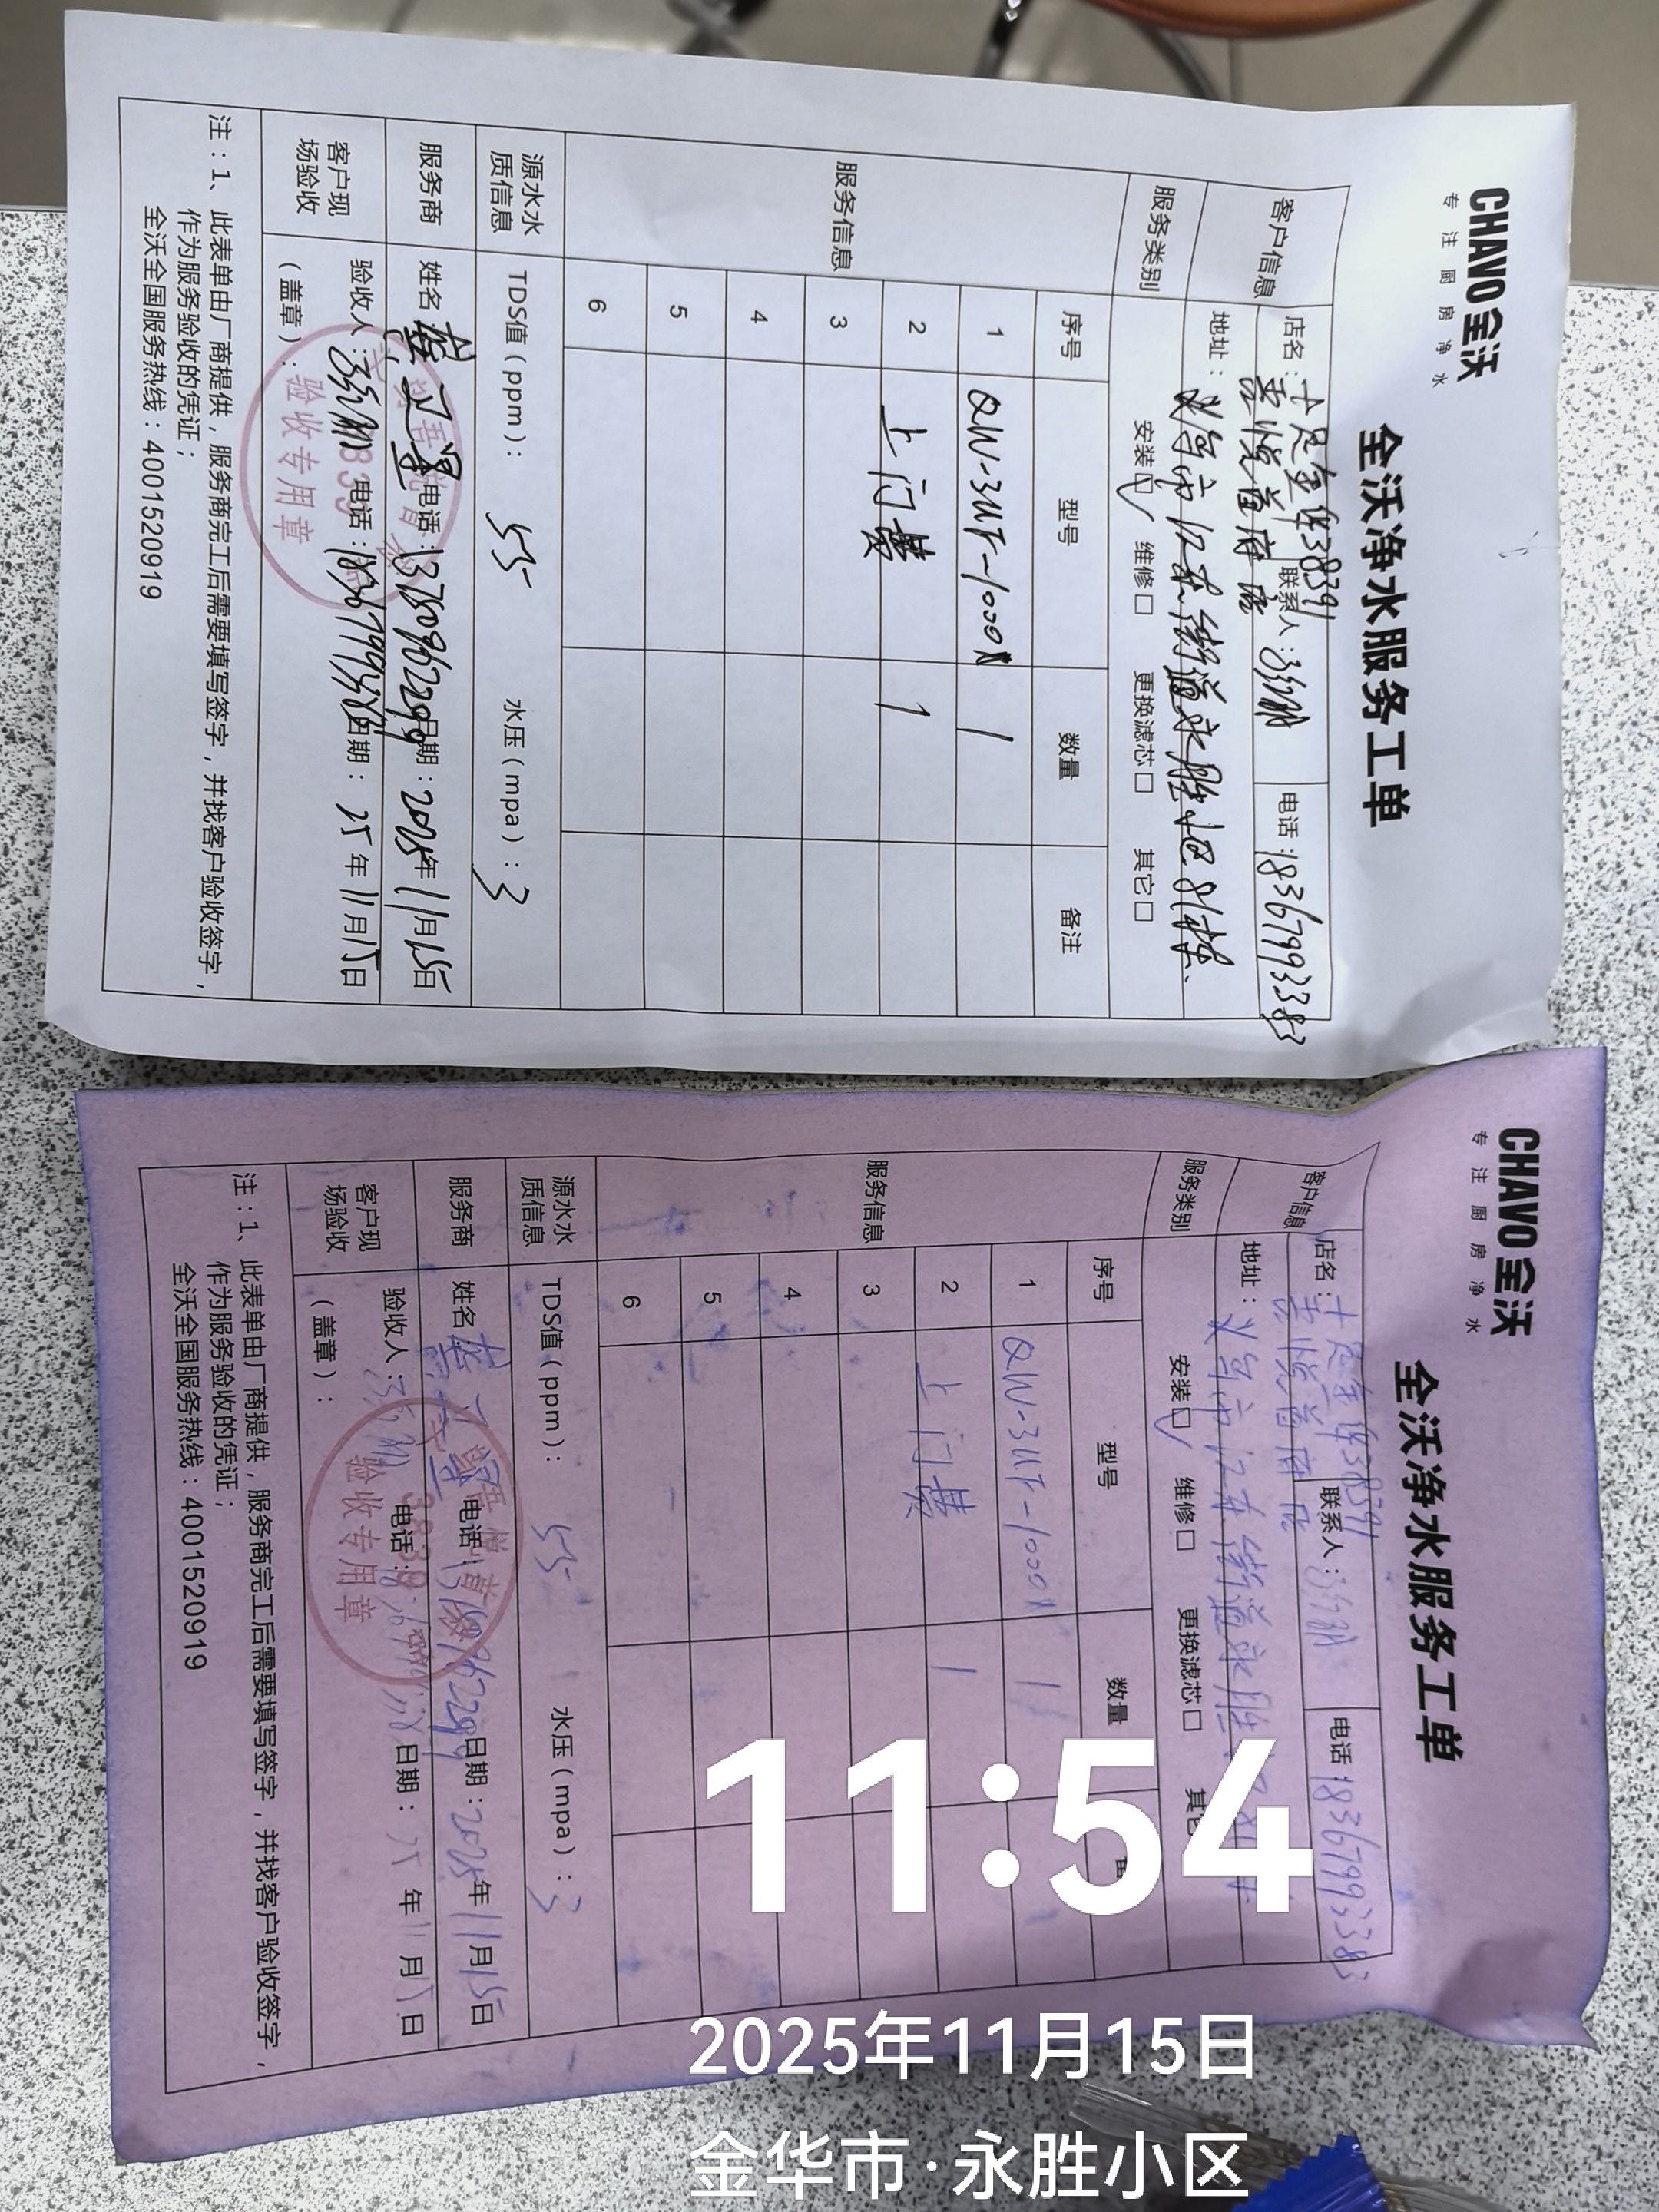 CHAVO 全沃
专注厨房净水
全沃净水服务工单
客户信息
店名：十足金华3839
吾悦首府店
联系人：
电话：18367993383
地址：义乌市江东街道永胜小区81栋
服务类别
安装☑ 维修□ 更换滤芯□ 其它□
服务信息
序号 型号 数量 备注
1 QW-3UF-1000 1
2 上门费 1
3
4
5
6
源水水质信息
TDS值（ppm）：55 水压（mpa）：3
服务商
姓名： 电话：13750962299 日期：2025年11月15日
客户现场验收
验收人： 电话：18367993383 日期：25年11月15日
（盖章）：
3839
验收专用章
注：1、此表单由厂商提供，服务商完工后需要填写签字，并找客户验收签字，
作为服务验收的凭证；
全沃全国服务热线：4001520919
CHAVO 全沃
专注厨房净水
全沃净水服务工单
客户信息
店名：十足金华3839
吾悦首府店
联系人：
电话：18367993383
地址：义乌市江东街道永胜
服务类别
安装☑ 维修□ 更换滤芯□ 其它
服务信息
序号 型号 数量
1 QW-3UF-1000 1
2 上门费 1
3
4
5
6
源水水质信息
TDS值（ppm）：55 水压（mpa）：3
服务商
姓名： 电话：13750962299 日期：2025年11月15日
客户现场验收
验收人： 电话： 日期：25年11月15日
（盖章）：
3839
验收专用章
注：1、此表单由厂商提供，服务商完工后需要填写签字，并找客户验收签字，
作为服务验收的凭证；
全沃全国服务热线：4001520919
11:54
2025年11月15日
金华市·永胜小区